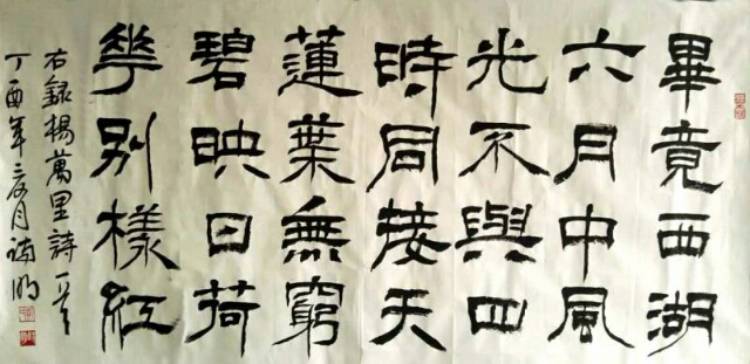 畢竟西湖
六月中風
光不與四
時同接天
蓮葉無窮
碧映日荷
華別樣紅
右錄楊萬里詩一首
丁酉年三月